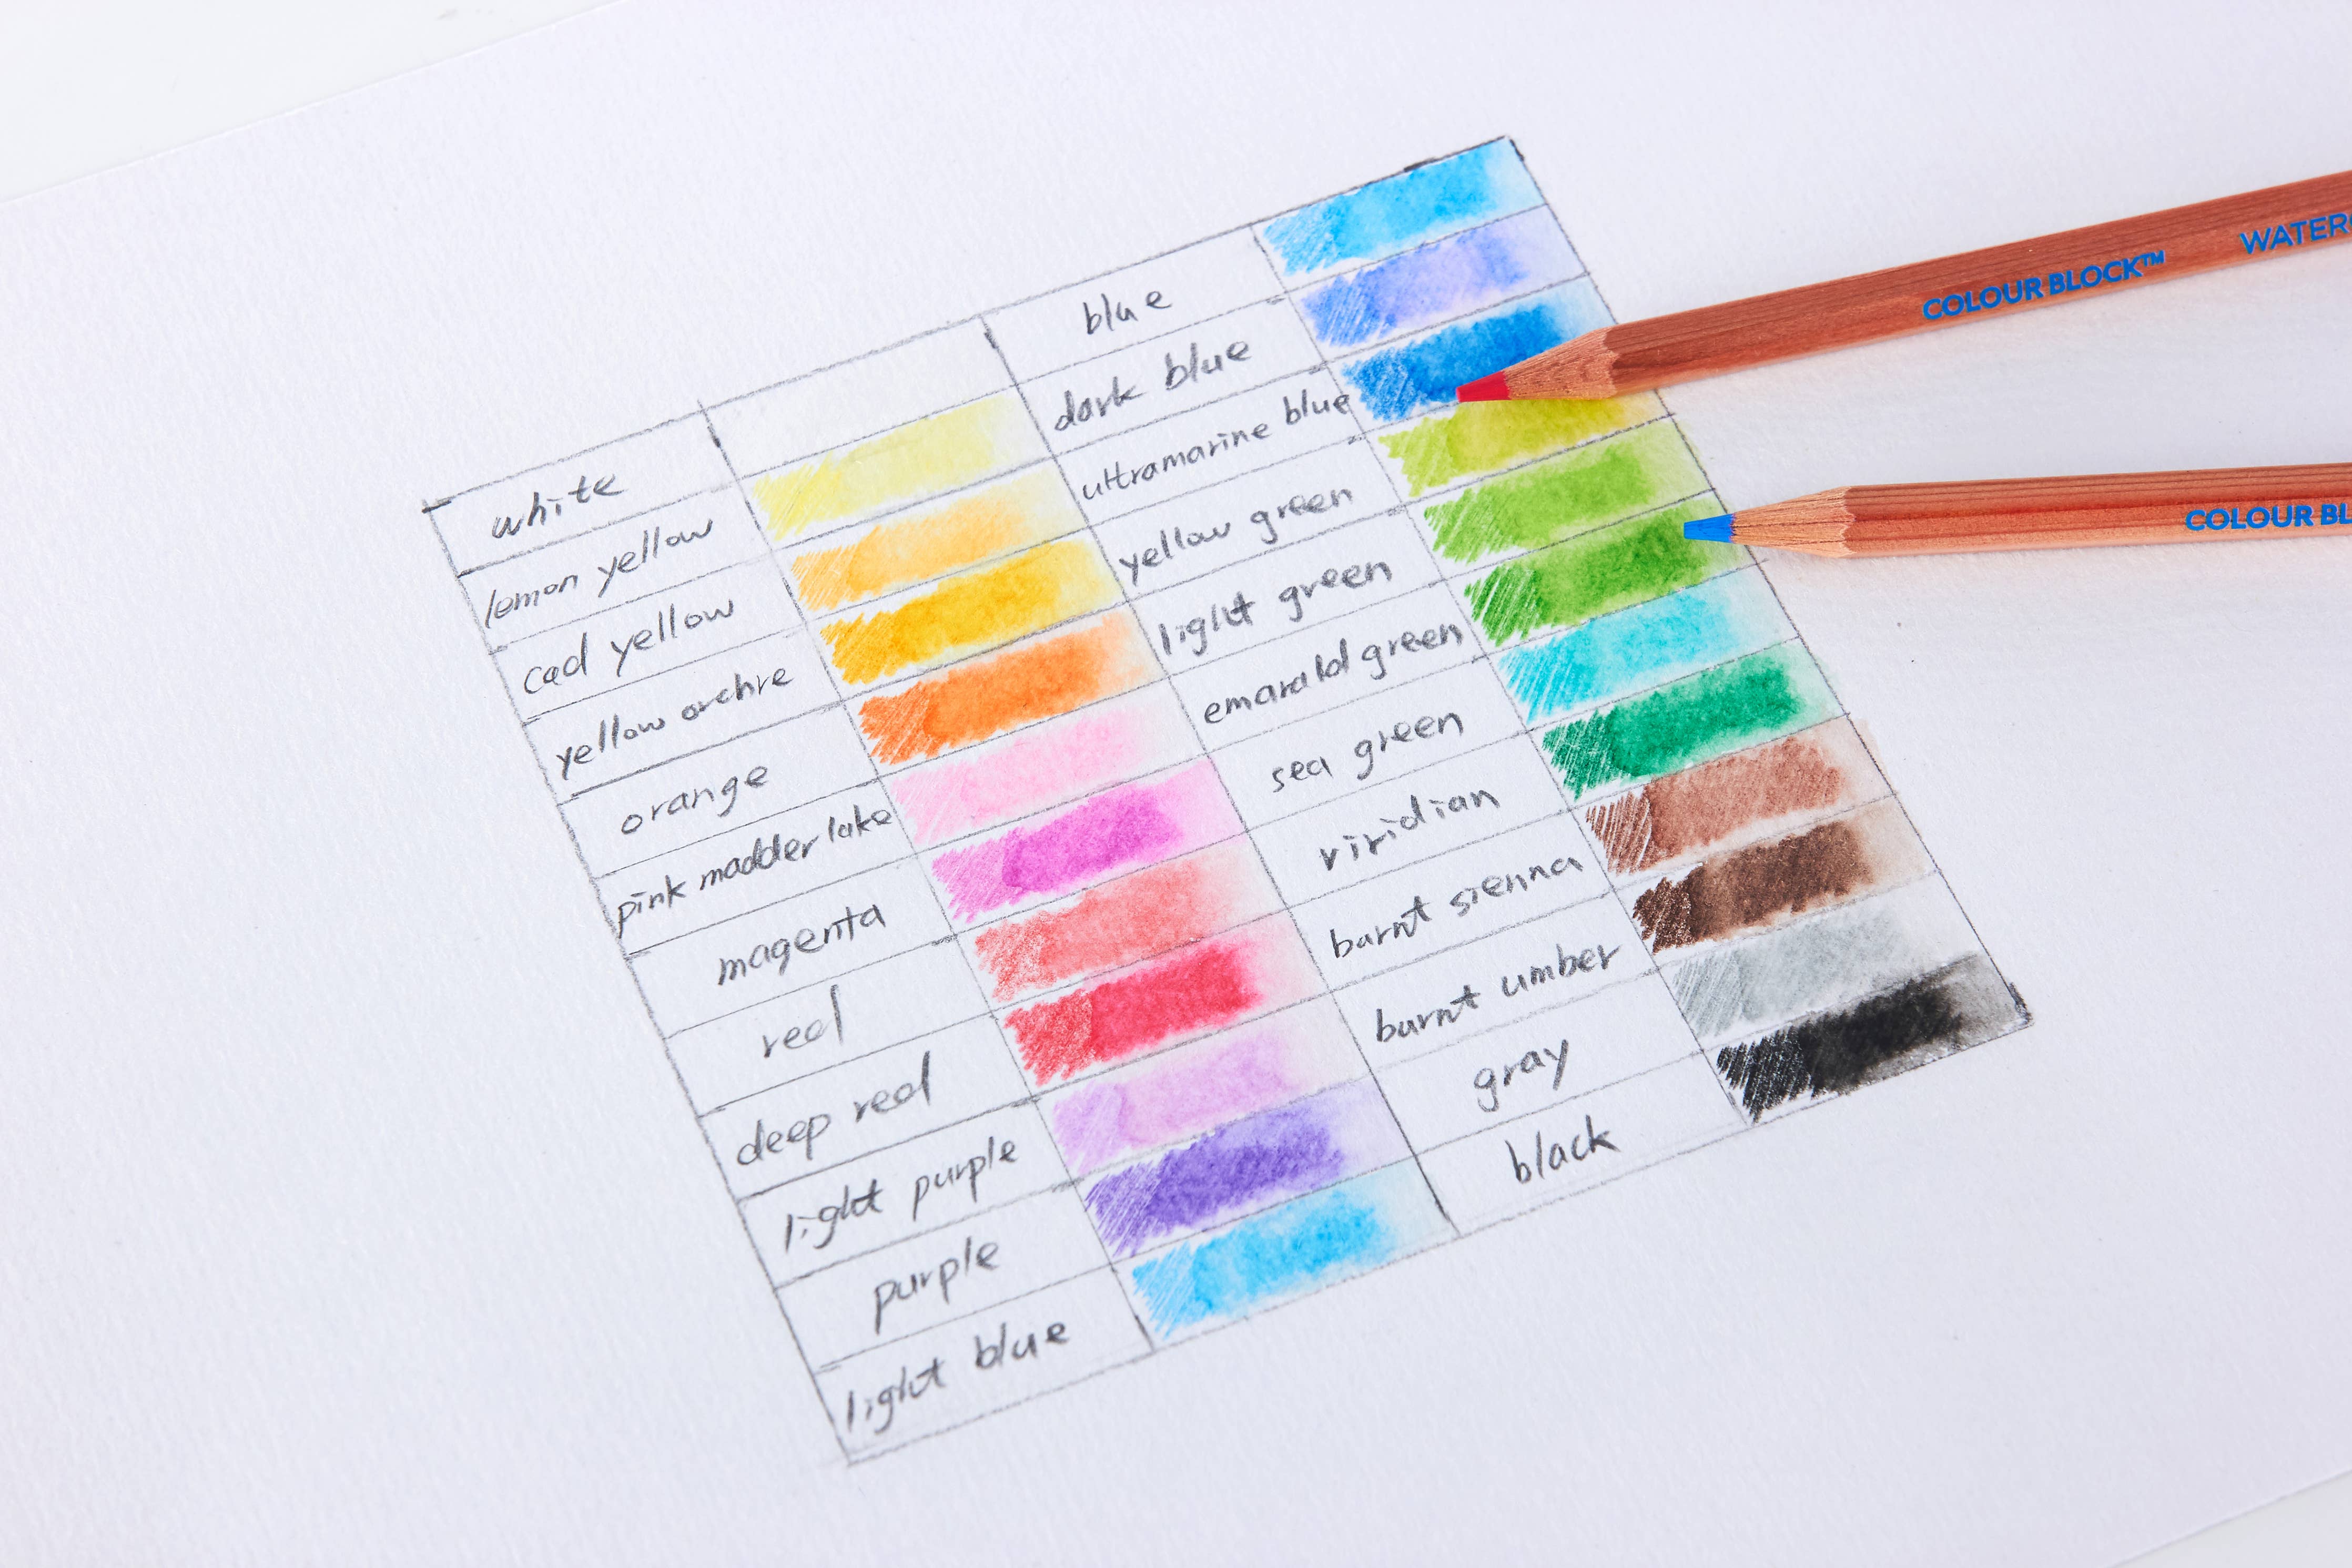 white
lemon yellow
cad yellow
yellow orchre
orange
pink madder lake
magenta
red
deep red
light purple
purple
light blue
blue
dark blue
ultramarine blue
yellow green
light green
emarald green
sea green
viridian
barnt sienna
burnt umber
gray
black
COLOUR BLOCK™ WATER
COLOUR BL